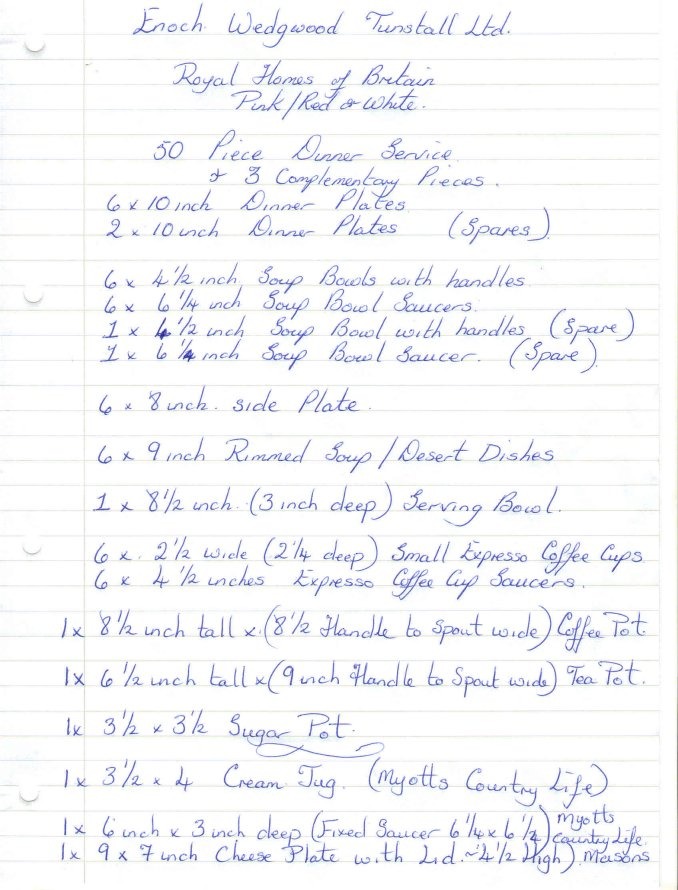 Enoch Wedgwood Tunstall Ltd.
Royal Homes of Britain
Pink/Red & White.
50 Piece Dinner Service
& 3 Complementary Pieces.
6 x 10 inch Dinner Plates
2 x 10 inch Dinner Plates (Spares)
6 x 4 1/2 inch Soup Bowls with handles
6 x 6 1/4 inch Soup Bowl Saucers.
1 x 4 1/2 inch Soup Bowl with handles (Spare)
1 x 6 1/4 inch Soup Bowl Saucer. (Spare)
6 x 8 inch. side Plate.
6 x 9 inch Rimmed Soup / Desert Dishes
1 x 8 1/2 inch. (3 inch deep) Serving Bowl.
6 x. 2 1/2 wide (2 1/4 deep) Small Expresso Coffee Cups.
6 x 4 1/2 inches Expresso Coffee Cup Saucers.
1x 8 1/2 inch tall x (8 1/2 Handle to Spout wide) Coffee Pot.
1x 6 1/2 inch tall x (9 inch Handle to Spout wide) Tea Pot.
1x 3 1/2 x 3 1/2 Sugar Pot.
1x 3 1/2 x 4 Cream Jug. (Myotts Country Life)
1x 6 inch x 3 inch deep (Fixed Saucer 6 1/4 x 6 1/2) Myotts Country Life.
1x 9 x 7 inch Cheese Plate with Lid ~ 4 1/2 High) Meisons